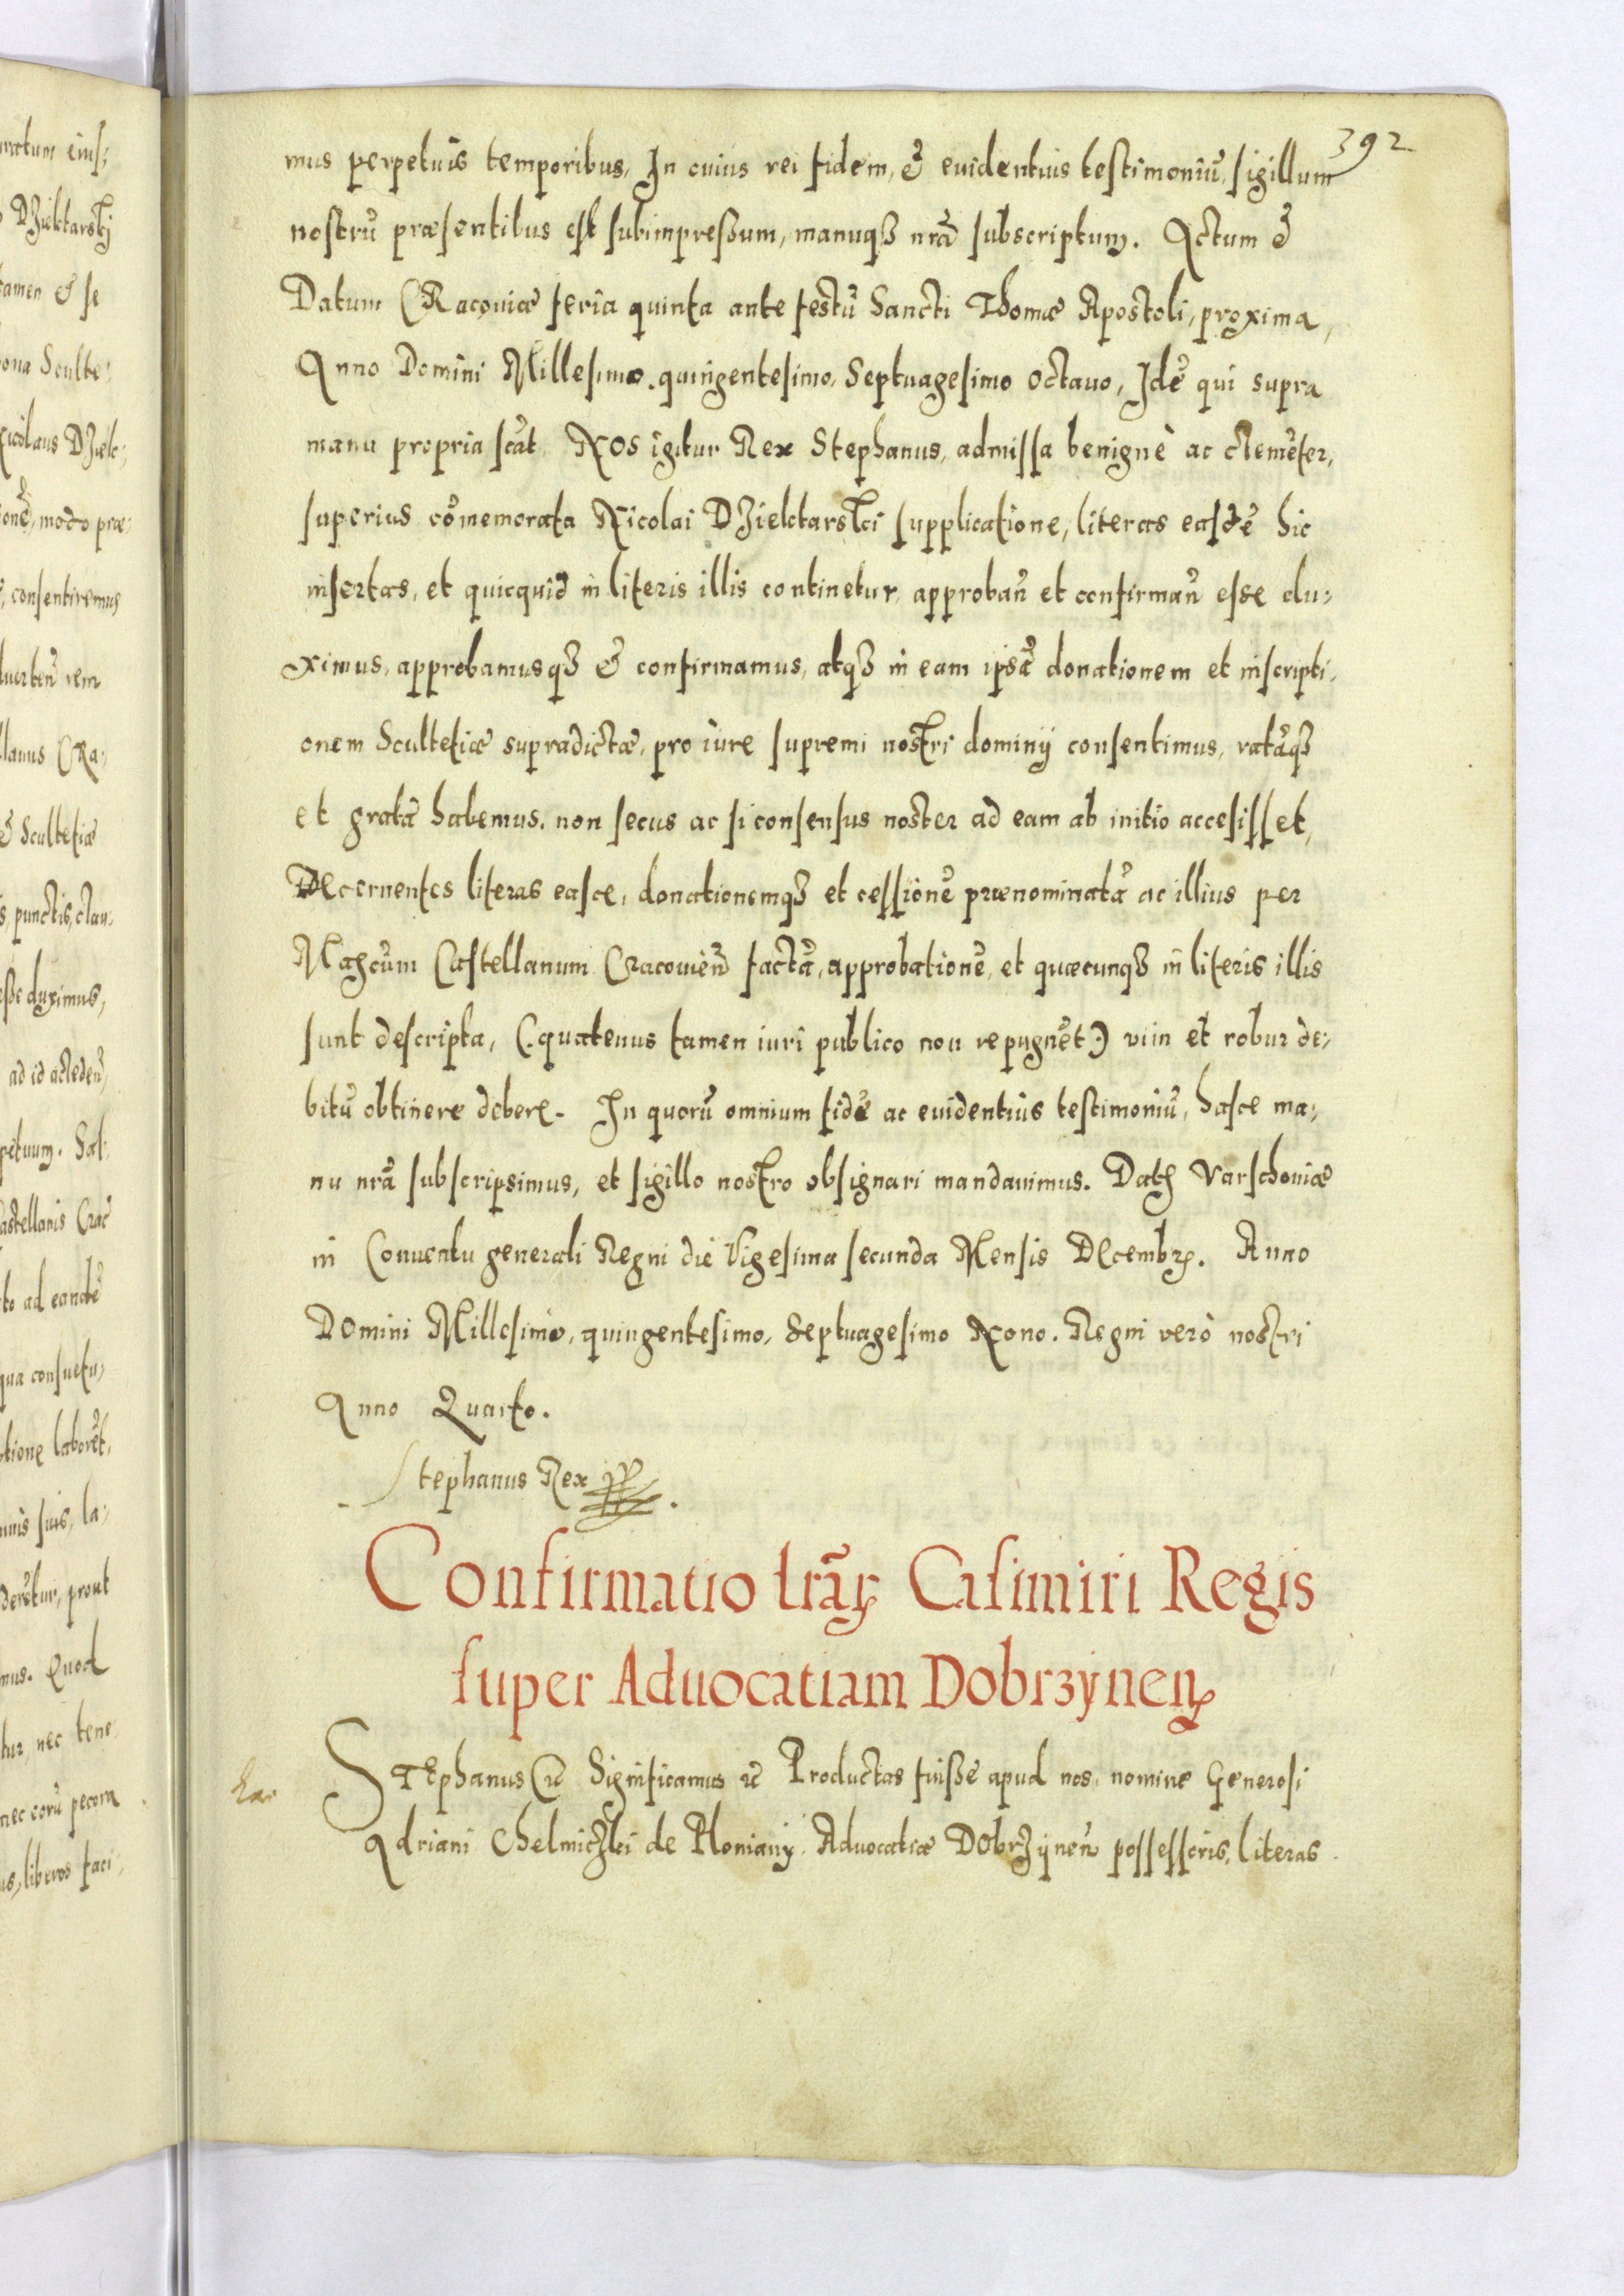 392
mus perpetuis temporibus, In cuius rei fidem, & euidentius testimoniũ, sigillum
nostrũ præsentibus est subimpressum, manuqȝ nrã subscriptum. Actum &
Datum CRacouiæ feria quinta ante festũ Sancti Thomæ Apostoli, proxima,
Anno Domini Millesimo. quingentesimo, Septuagesimo octauo, Idẽ qui supra
manu propria scãt. NOS igitur Rex Stephanus, admissa benignè ac clemẽter,
superius cõmemorata Nicolai DZielctarskj supplicatione, literas easdẽ hic
insertas, et quicquid in literis illis continetur, approbañ et confirmañ esse du:
ximus, approbamusqȝ & confirmamus, atqȝ in eam ipsã donationem et inscripti,
onem Scultetiæ supradictæ, pro iure supremi nostri dominij consentimus, ratãqȝ
et gratã habemus, non secus ac si consensus noster ad eam ab initio accesisset,
DEcernentes literas easce, donationemqȝ et cessionẽ prænominatã ac illius per
Magcũm Castellanum Cracouieñ factã, approbationẽ, et quæcunqȝ in literis illis
sunt descripta, (quatenus tamen iuri publico non repugnẽt) vim et robur de:
bitũ obtinere debere. In quorũ omnium fidẽ ac euidentius testimoniũ, hasce ma:
nu nrã subscripsimus, et sigillo nostro obsignari mandauimus. Datꝫ Varschouiæ
in Conuentu generali Regni die Vigesima secunda Mensis DEcembrꝫ. Anno
DOmini Millesimo, quingentesimo, Septuagesimo Nono. Regni verò nostri
Anno Quarto.
Stephanus Rex
Confirmatio lrãꝝ Casimiri Regis
super Aduocatiam Dobrzyneñ
STEphanus &c Significamus &c Productas fuisse apud nos, nomine Generosi
Adriani Chelmiczki de Ploniany, Aduocatiæ DObrZyneñ possessoris, literas